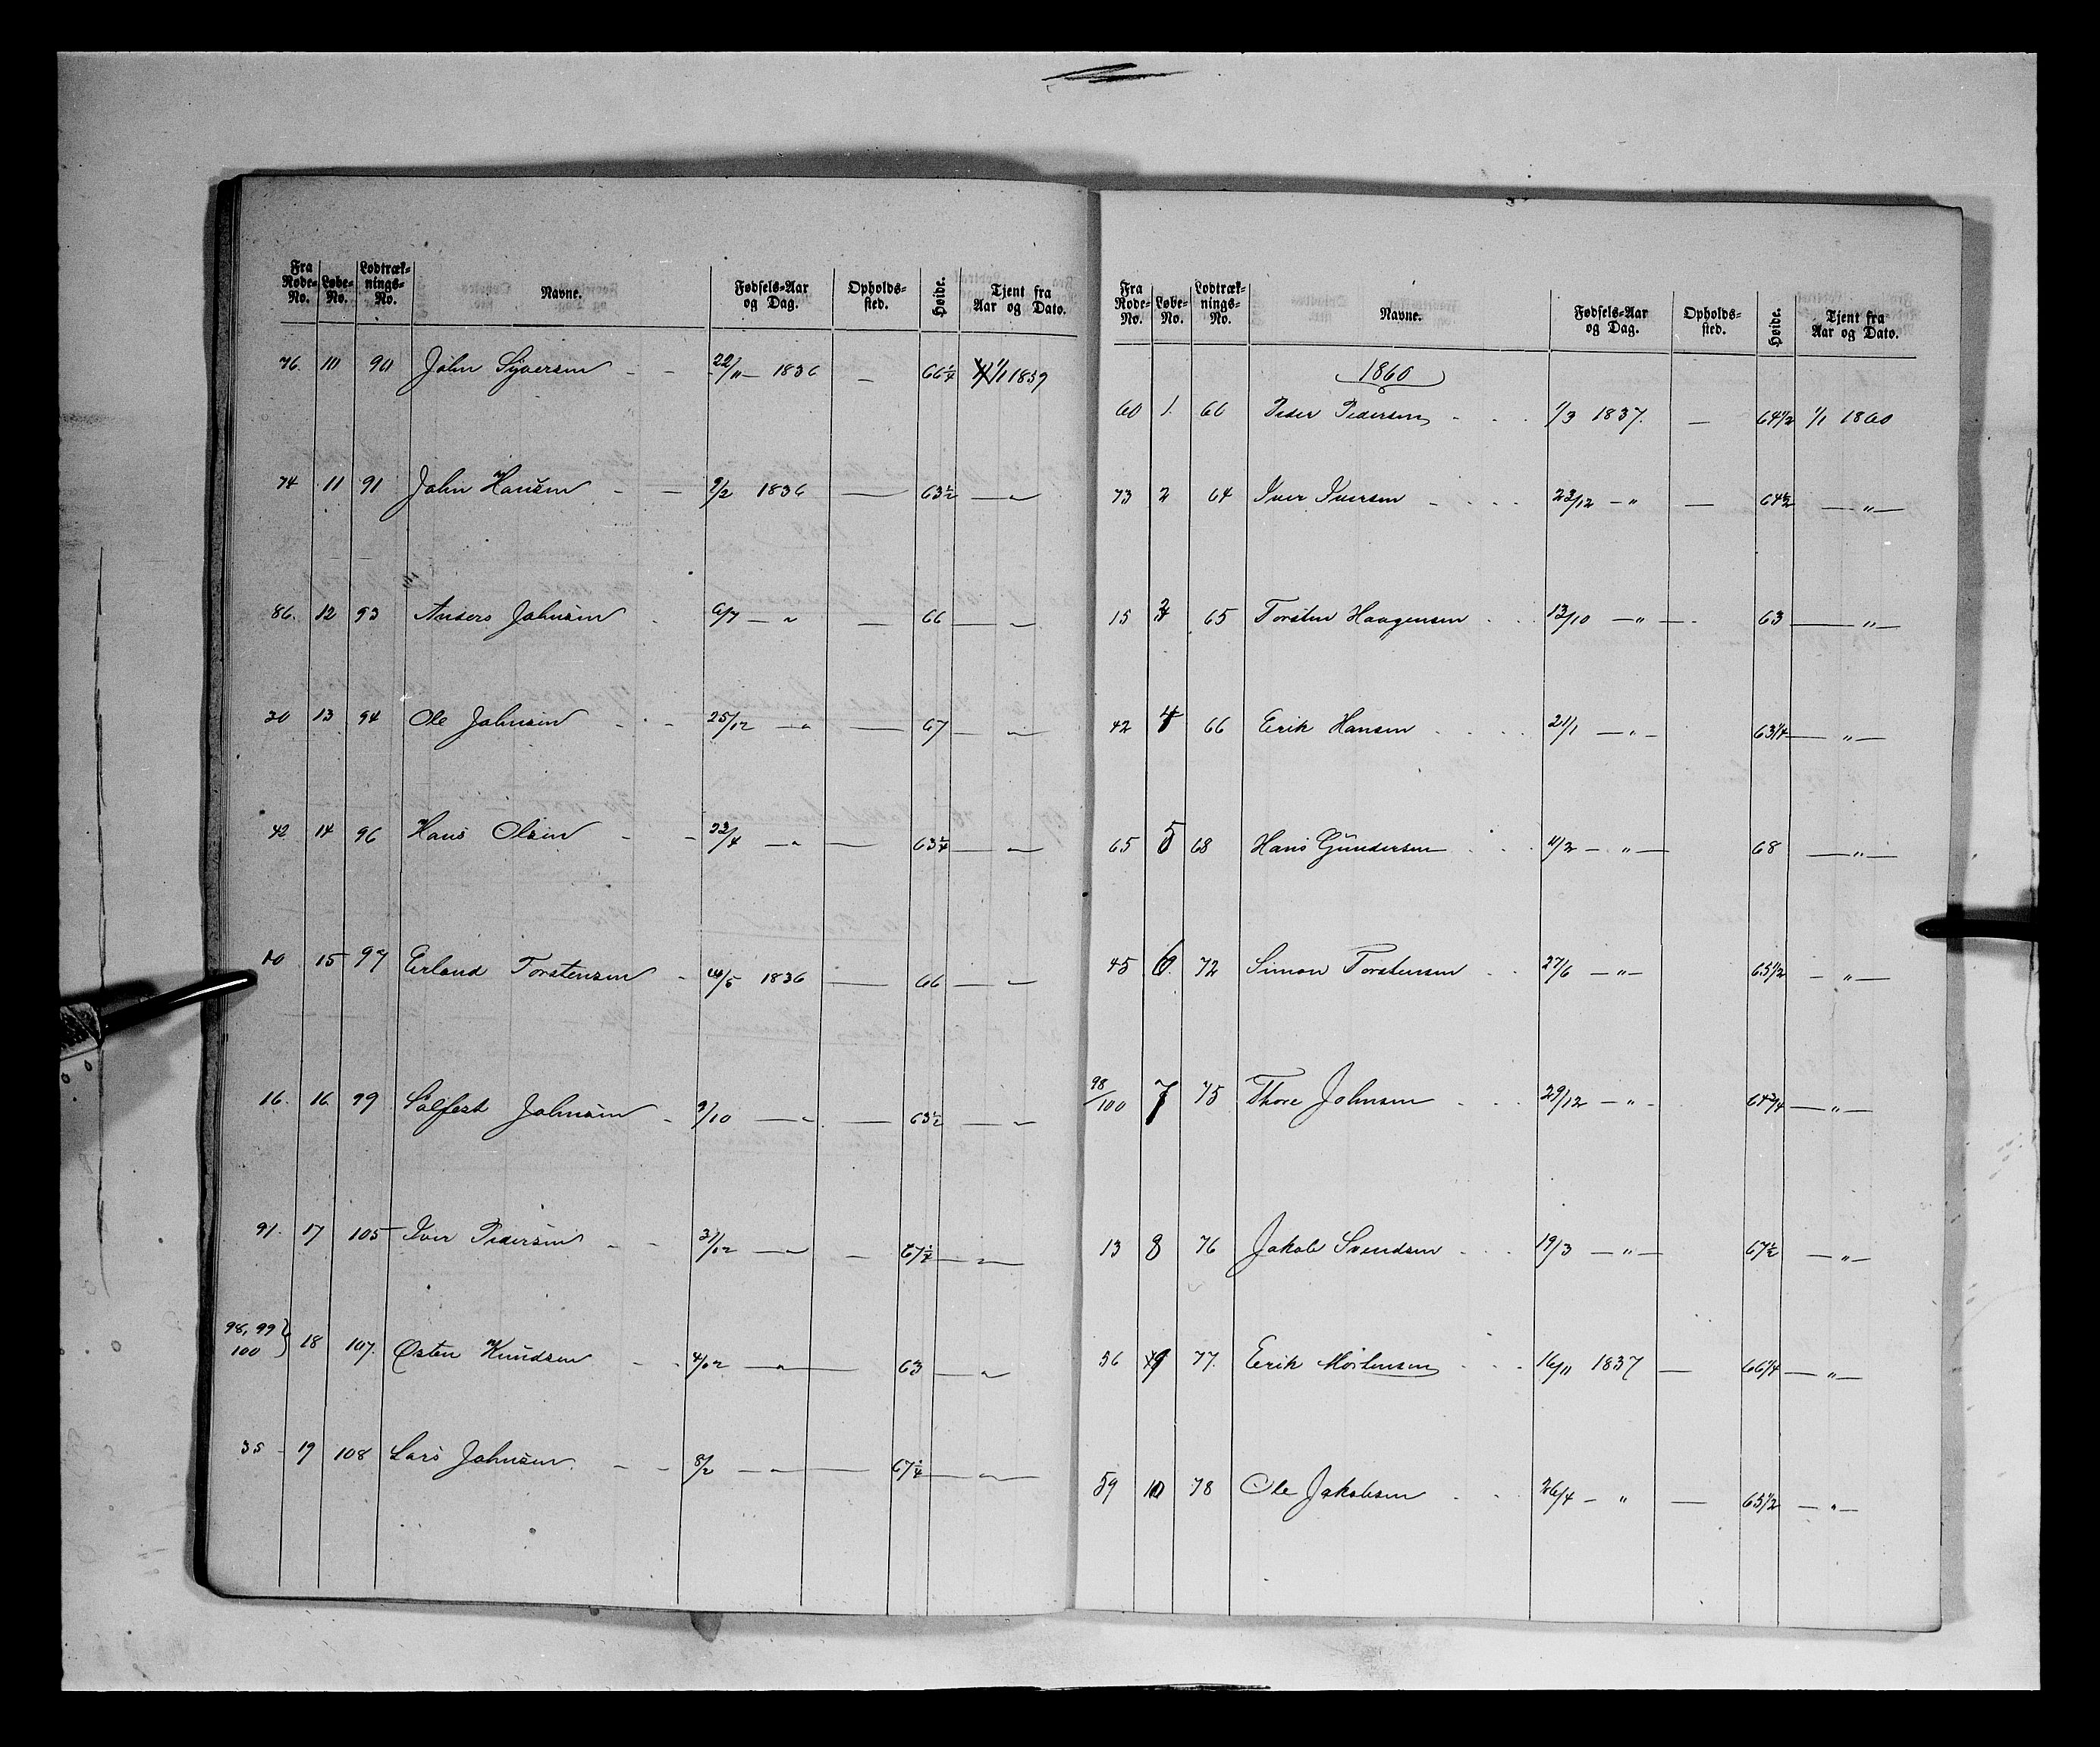 Fra Rode-No. Løbe-No. Lodtræk-nings-No. Navne. Fødsels-Aar og Dag. Opholds-sted. Høide. Tjent fra Aar og Dato.
76. 10 90 John Syversen - - 22/11 - 1836 — 66 1/4 1/1 1859
74 11 91 John Hansen - — 9/2 1836 — 63 1/2 — „
86. 12 93 Anders Johnsen - 6/7 — „ — 66 — „
30 13 94 Ole Johnsen - - - 25/12 — „ — 67 — „
42 14 96 Hans Olsen - - 22/4 — „ — 63 1/4 — „
10 15 97 Erland Torstensen - 14/5 1836 — 66 — „
16. 16 99 Sølfest Johnsen - 9/10 — „ — 63 1/2 — „
91. 17 105 Iver Pedersen - - 31/12 — „ — 67 1/4 — „
98, 99 100 } 18 107. Østen Knudsen - - 4/12 — „ — 63 — „
35 - 19 108 Lars Johnsen - - 8/2 — „ — 67 1/4 — „
Fra Rode-No. Løbe-No. Lodtræk-nings-No. Navne. Fødsels-Aar og Dag. Opholds-sted. Høide. Tjent fra Aar og Dato.
1860
60 1. 60 Peder Pedersen - - - 1/3 1837. — 64 1/2 1/1 1860
73 2 64 Iver Iversen - - - - 23/12 — „ — 64 1/2 — „ —
15 3 65 Torsten Haagensen - - - 13/10 — „ — 63 — „ —
42 4 66 Erik Hansen - - - - 21/1 — „ — 63 1/4 — „ —
65 5 68 Hans Gundersen - - - 11/2 — „ — 68 — „ —
45 6. 72 Simon Torstensen - - 27/6 — „ — 65 1/2 — „ —
98/100 7 75 Thore Johnsen - - - 29/12 — „ — 64 3/4 — „ —
13 8 76 Jakob Svendsen - - - 19/3 — „ — 67 1/2 — „ —
56 9 77. Erik Mortensen - - - 16/11 1837 — 66 1/4 — „ —
59 10 78 Ole Jakobsen - - - 26/4 — „ — 65 1/2 — „ —